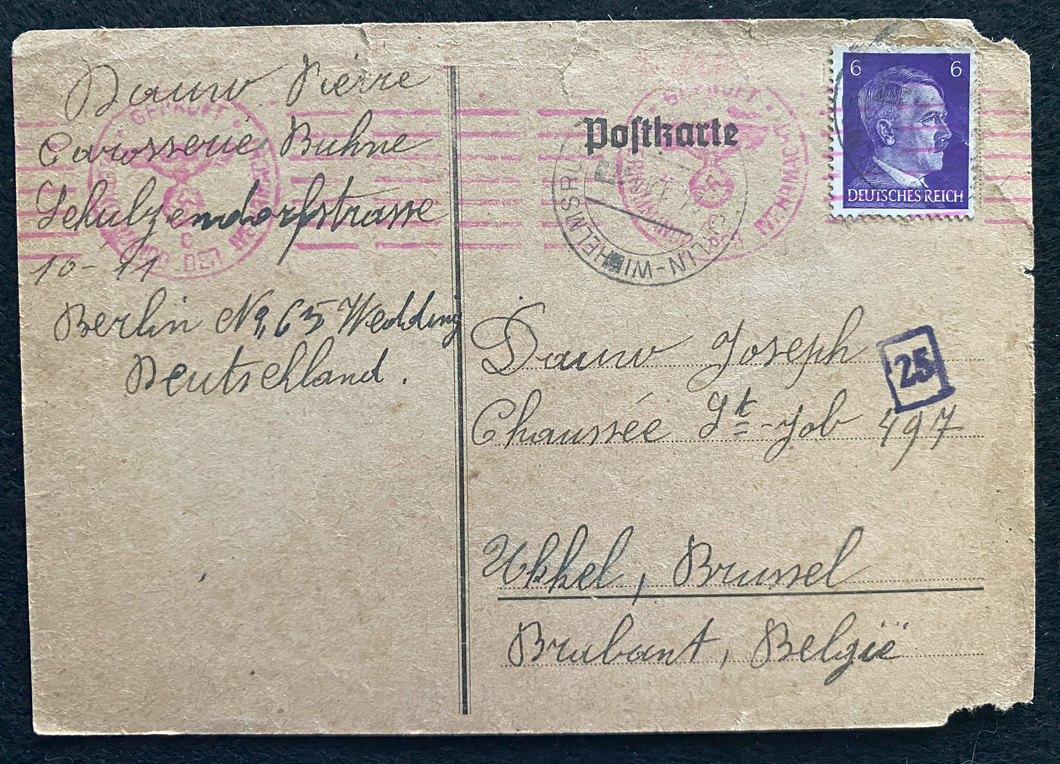 Dauw Pierre
Carosserie Buhne
Schulzendorfstrasse
10-11
Berlin No, 65 Wedding
Deutschland.
Postkarte
6 6
DEUTSCHES REICH
GEPRÜFT
GEPRÜFT
BERLIN-WILHELMSR
Dauw Joseph
25
Chaussée St-Job 497
Ukkel, Brussel
Brabant, België